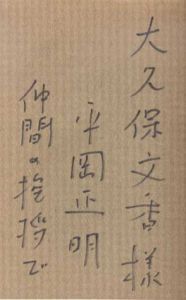 大久保文香様
平岡正明
仲間の挨拶で